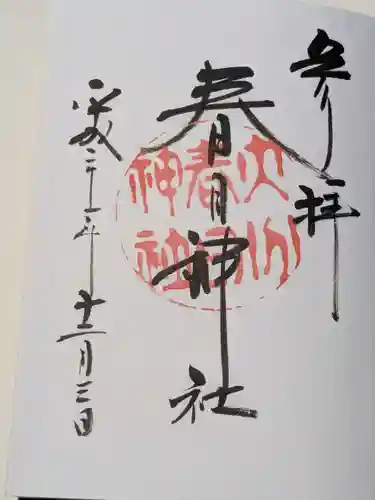 参拝
春日神社
平成二十一年十二月三日
春日
神社